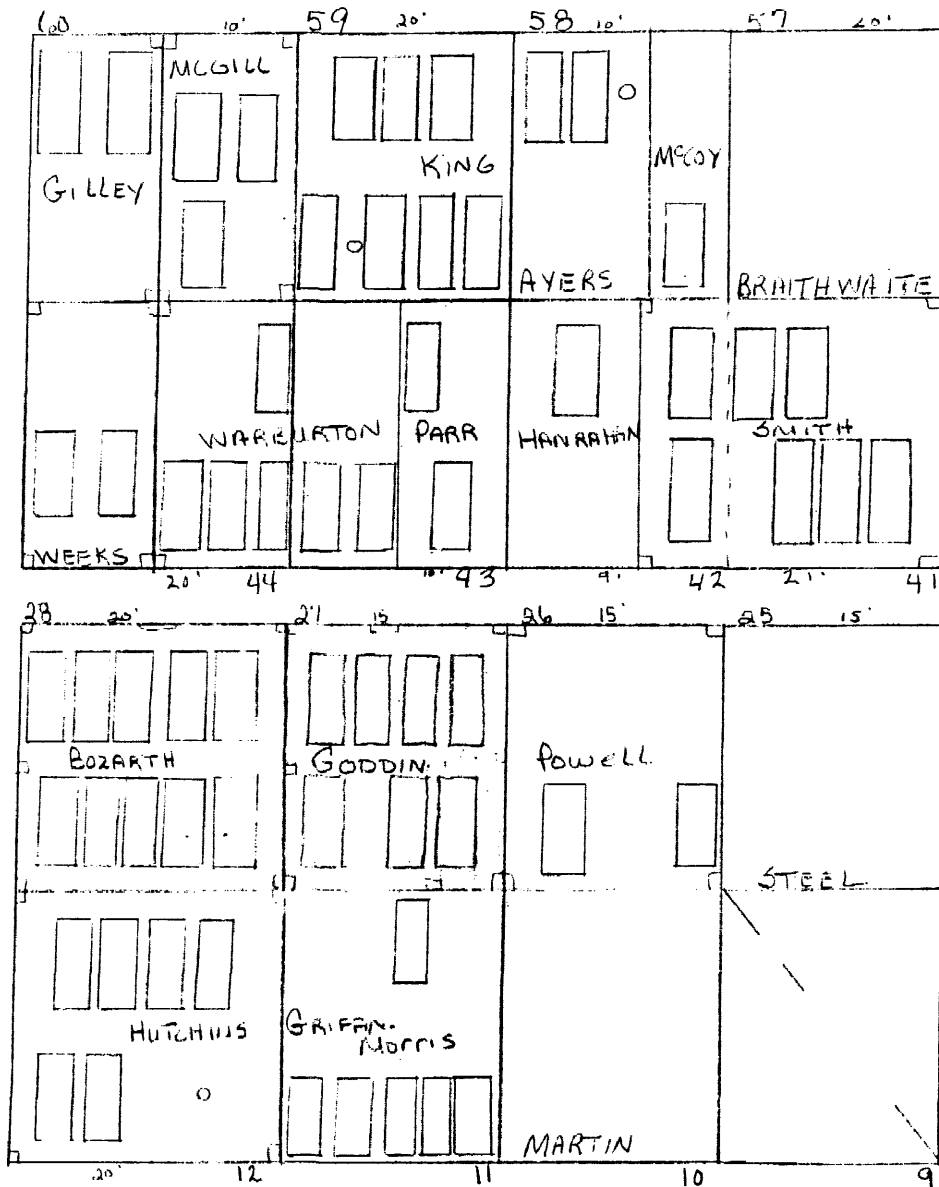 60 10' 59 20' 58 10' 57 20'
MCGILL
KING
McCOY
GILLEY
AYERS
BRAITHWAITE
WARBURTON
PARR
HANRAHAN
SMITH
WEEKS
20' 44 10' 43 9' 42 21' 41
28 20' 27 15' 26 15' 25 15'
BOZARTH
GODDIN
POWELL
STEEL
HUTCHINS
GRIFFIN-
MORRIS
MARTIN
20' 12 11 10 9